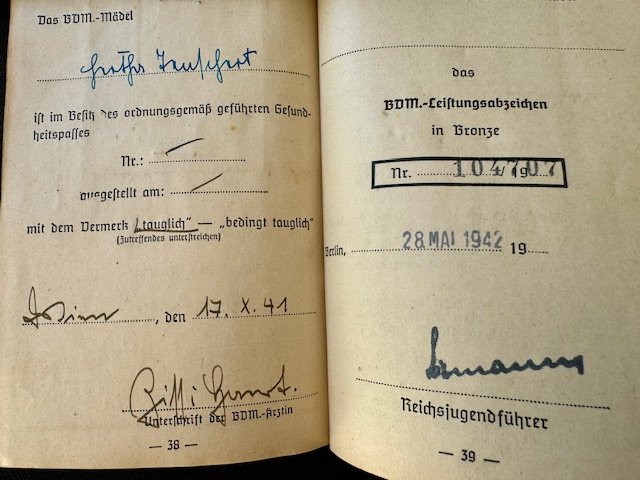 Das BDM.-Mädel
Hertha Teuschert
ist im Besitz des ordnungsgemäß geführten Gesund-
heitspasses
Nr.:
ausgestellt am:
mit dem Vermerk „tauglich" — „bedingt tauglich"
(Zutreffendes unterstreichen)
Wien, den 17. X. 41
Unterschrift der BDM.-Ärztin
— 38 —
das
BDM.-Leistungsabzeichen
in Bronze
Nr. 104707 /19
Berlin, 28 MAI 1942 19
Axmann
Reichsjugendführer
— 39 —